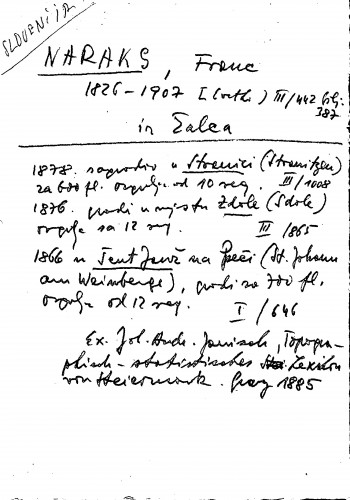 SLOVENIJA
NARAKS, Franc
1826-1907 III/442
387
iz Žalca
1878. sagradio u Stranici (Stranitzen)
za 600 fl. orgulje od 10 reg. III/1008
1876. gradi u mjestu Zdole (Sdole)
orgulje sa 12 reg. III/865
1866 u Šent Janž na Peči (St. Johann
am Weinberge), gradi za 700 fl.
orgulje od 12 reg. I/646
Ex. Jos. Andr. Janisch, Topogra-
phisch-statistisches Lexikon
von Steiermark. Graz 1885